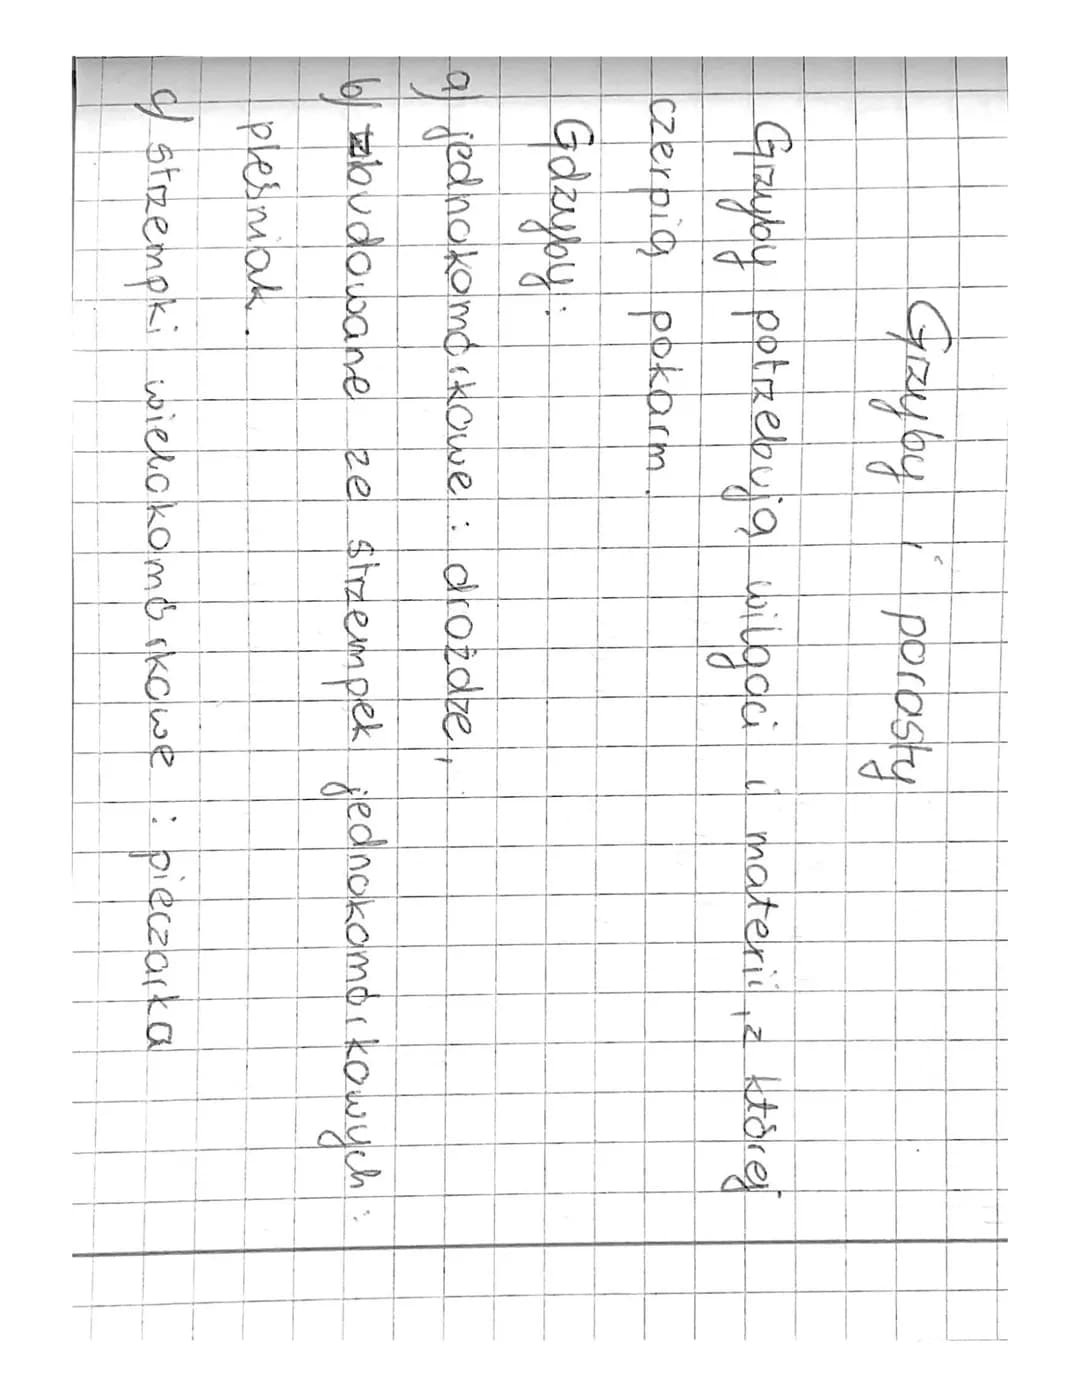 Grzyby i porosty
Grzyby potrzebują wilgoci i materii, z której
czerpią pokarm.
Gdzyby:
a) jednokomórkowe: drożdże,
b) zbudowane ze strzempek jednokomórkowych:
pleśniak.
c) strzempki wielokomórkowe: pieczarka